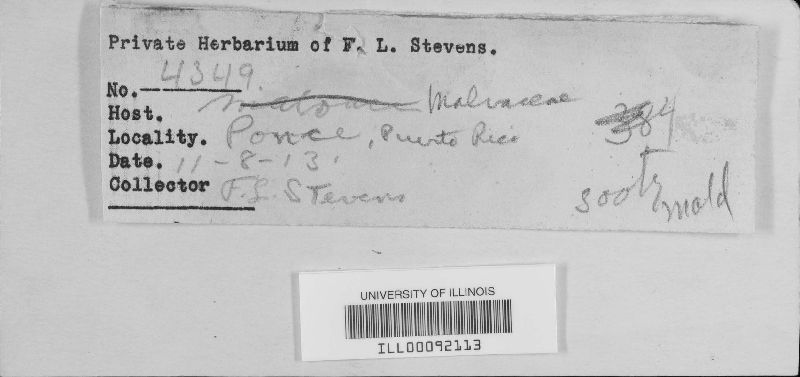 Private Herbarium of F. L. Stevens.
No. 4349.
Host. Malvaceae
Locality. Ponce, Puerto Rico
384
Date. 11-8-13.
Collector F. L. Stevens
sooty mold
UNIVERSITY OF ILLINOIS
ILL00092113